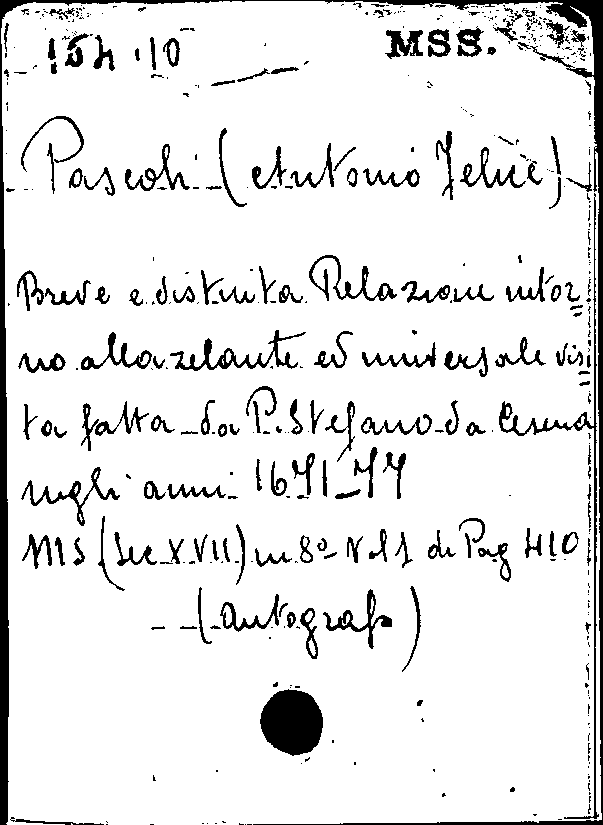 154.10
MSS.
Pascoli (Antonio Felice)
Breve e distinta Relazione intor=
no alla zelante ed universale visi=
ta fatta da P. Stefano da Cesena
negli anni 1671_77
MS (Sec XVII) in 8º Vol 1 di Pag 410
(autografo)